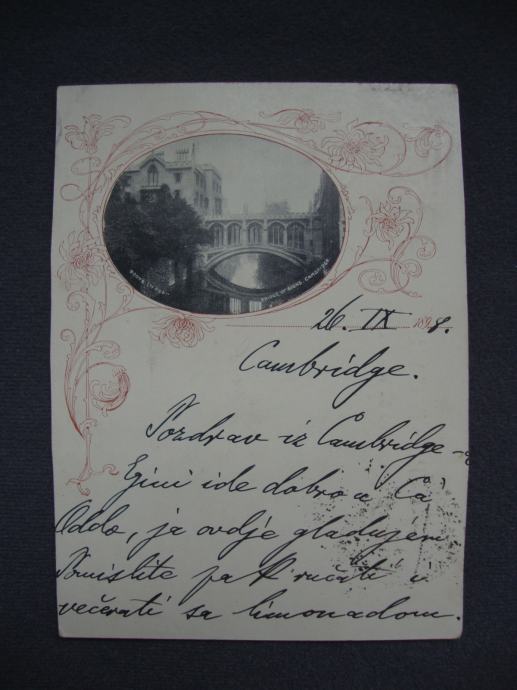 BRIDGE OF SIGHS, CAMBRIDGE
26. IX 1898.
Cambridge.
Pozdrav iz Cambridge-a
Egini ide dobro u Ca
Oddo, ja ovdje gladujem
pak ručati i
večerati sa limonadom.